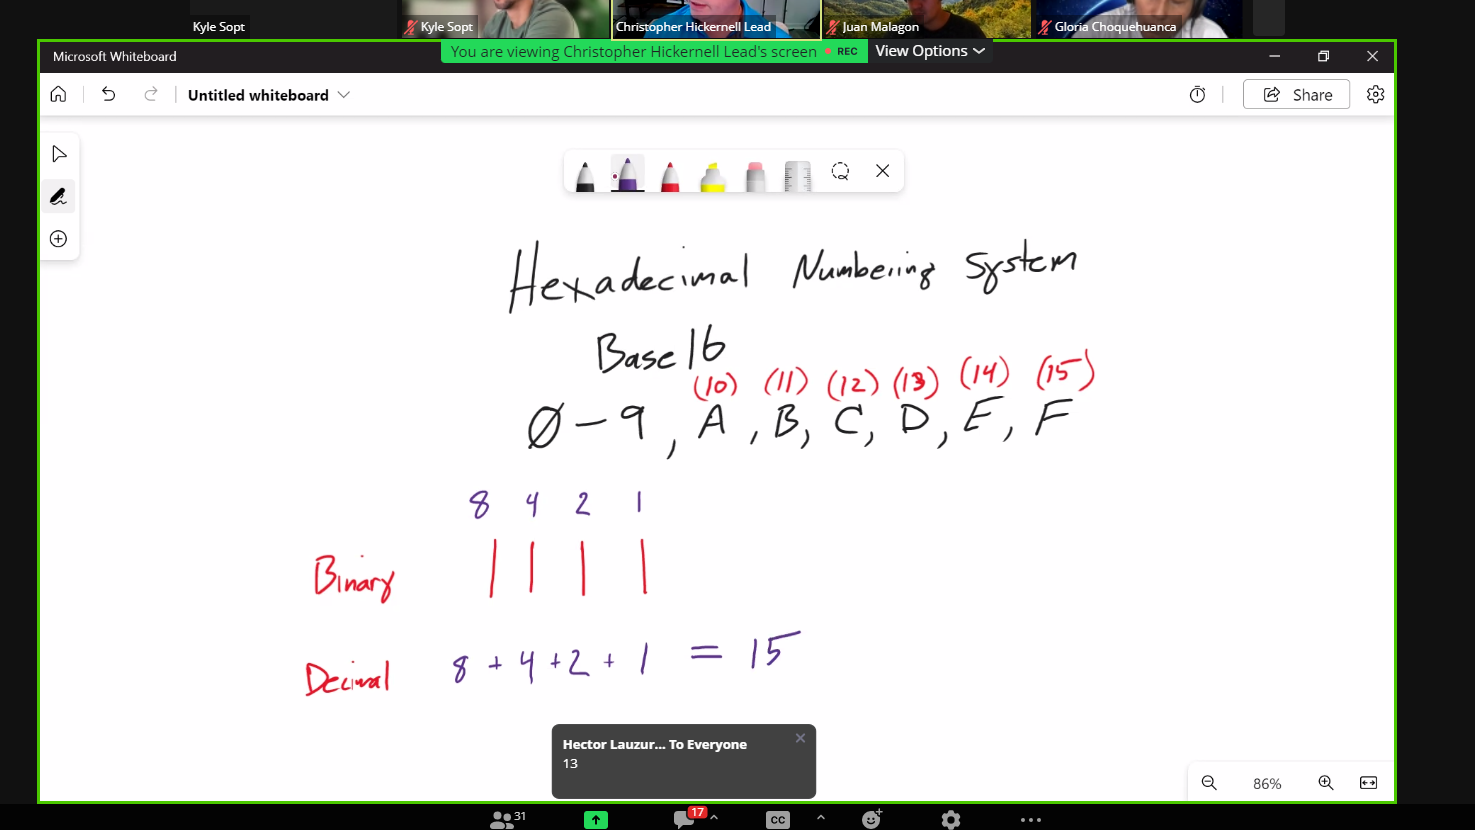 Kyle Sopt
Kyle Sopt
Christopher Hickernell Lead
Juan Malagon
Gloria Choquehuanca
Microsoft Whiteboard
You are viewing Christopher Hickernell Lead's screen
REC
View Options
Untitled whiteboard
Share
Hexadecimal Numbering System
Base 16
(10) (11) (12) (13) (14) (15)
0 - 9, A, B, C, D, E, F
8 4 2 1
Binary 1 1 1 1
Decimal 8 + 4 + 2 + 1 = 15
Hector Lauzur... To Everyone
13
86%
31
17
CC